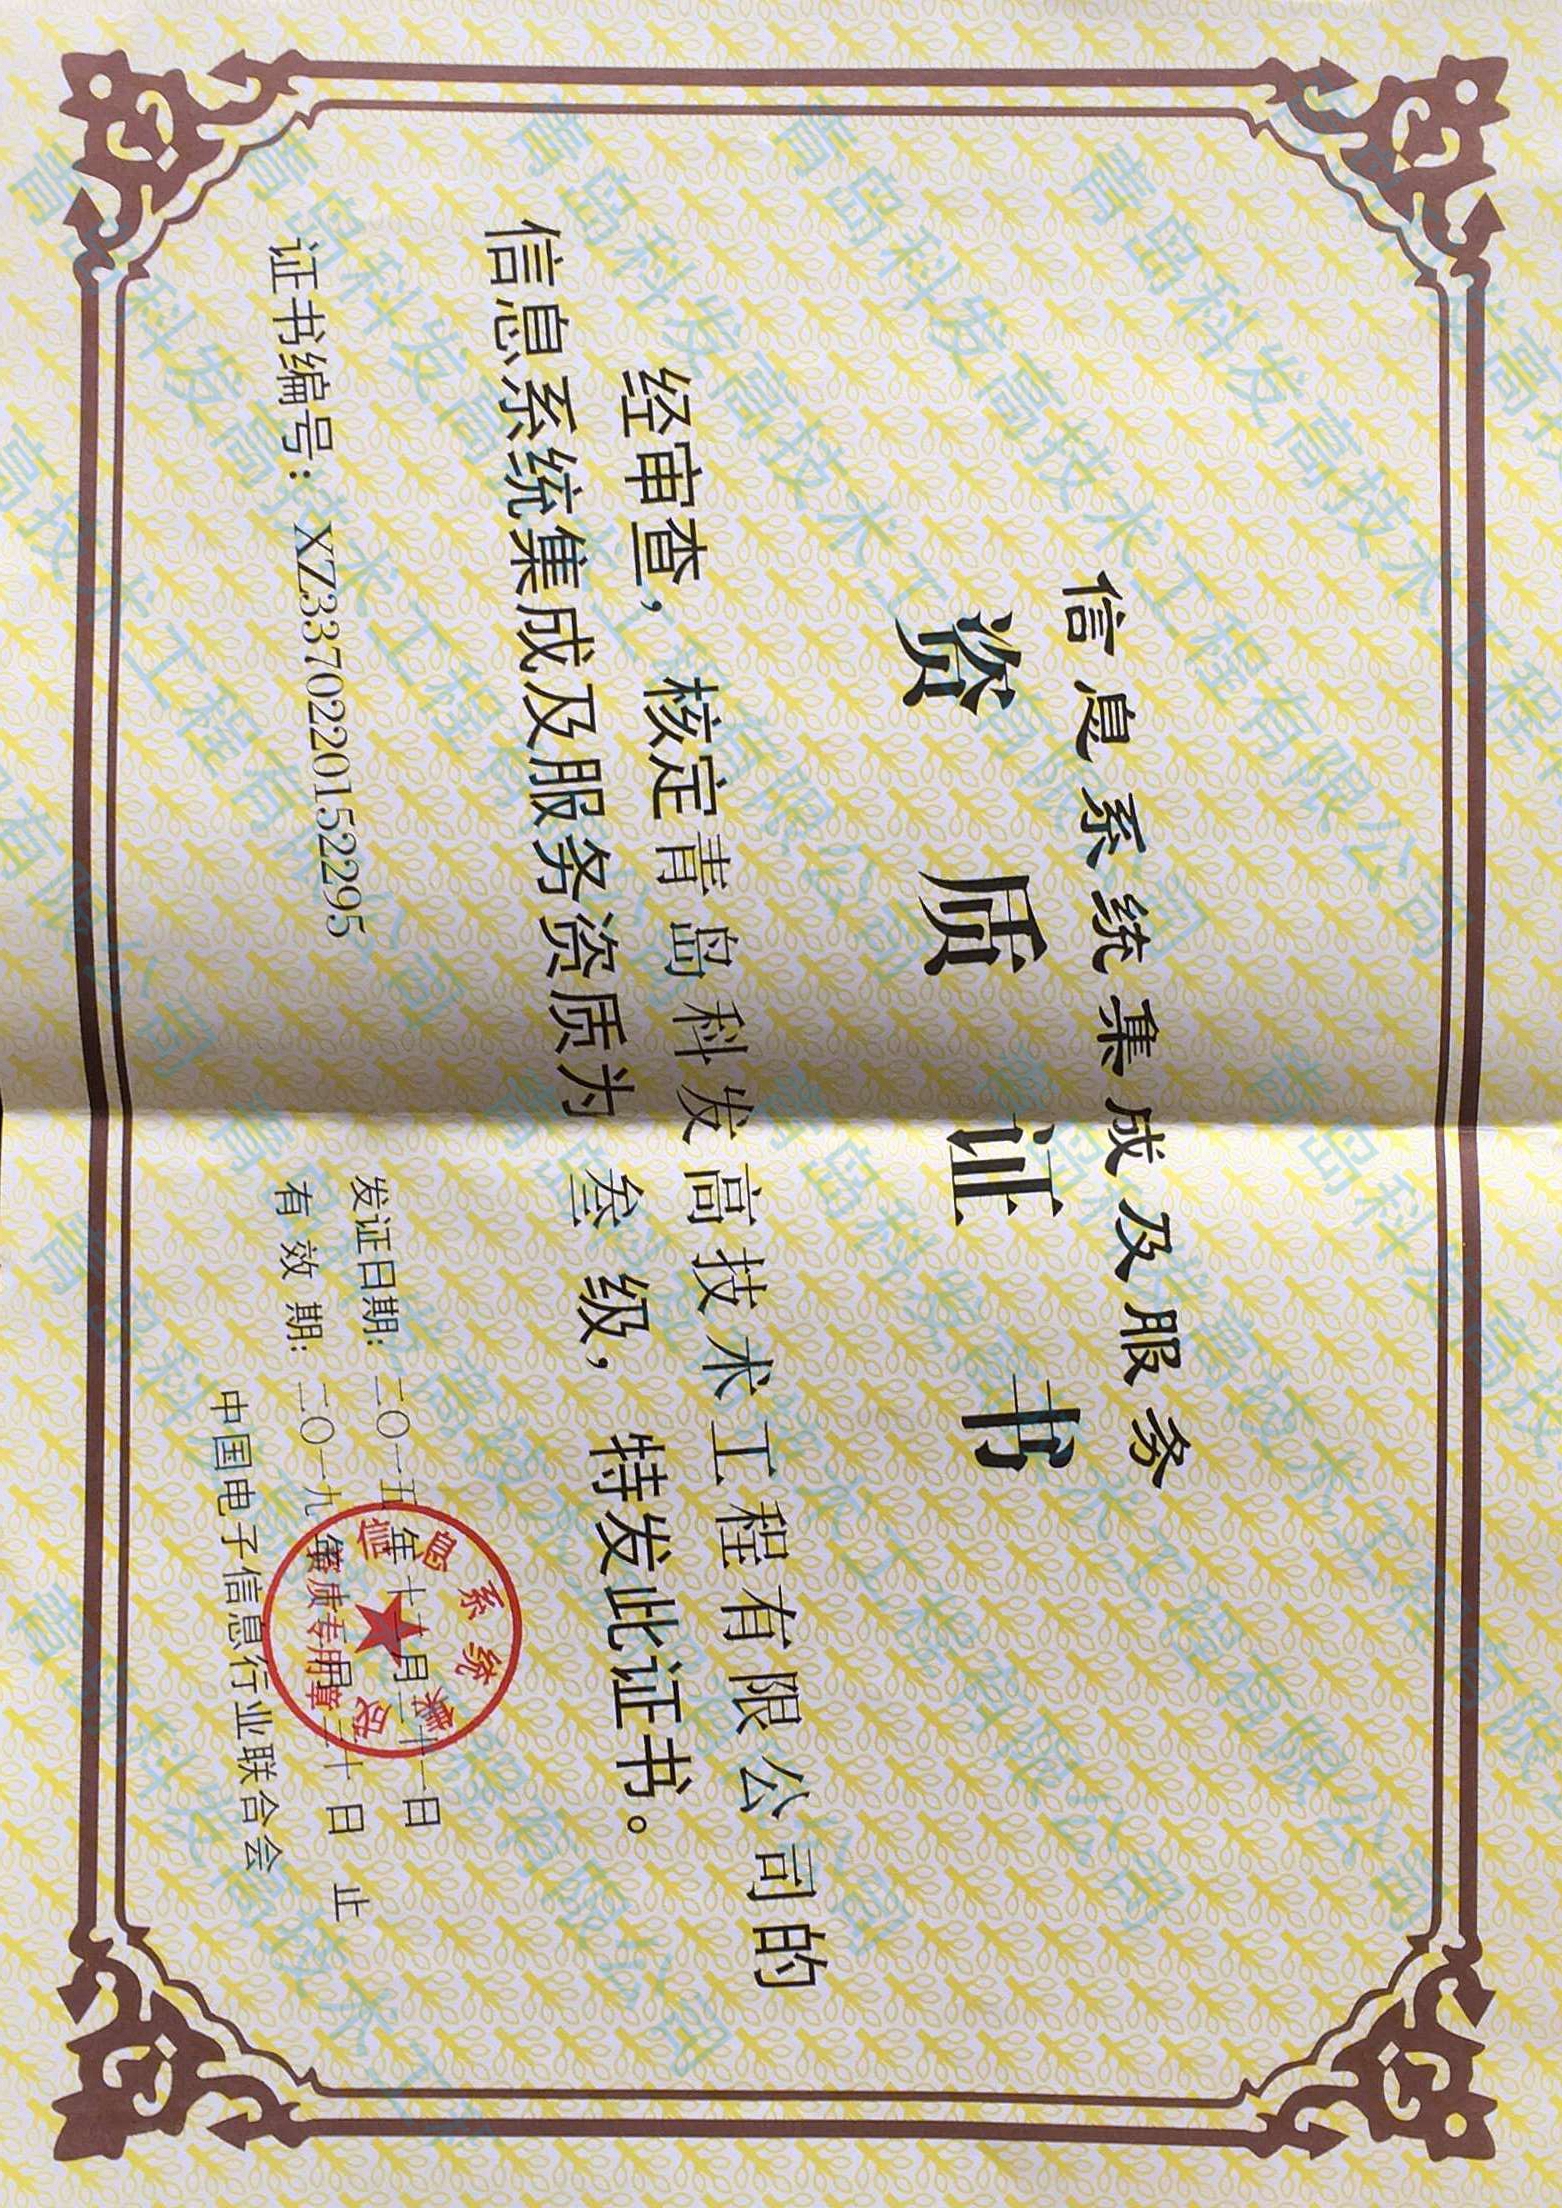 信息系统集成及服务
资质证书
经审查，核定青岛科发高技术工程有限公司的
信息系统集成及服务资质为 叁 级，特发此证书。
证书编号：XZ3370220152295
发证日期：二〇一五年十二月三十一日
有效期：二〇一九年 月三十日止
中国电子信息行业联合会
信息系统集成
资质专用章
青岛科发高技术工程有限公司